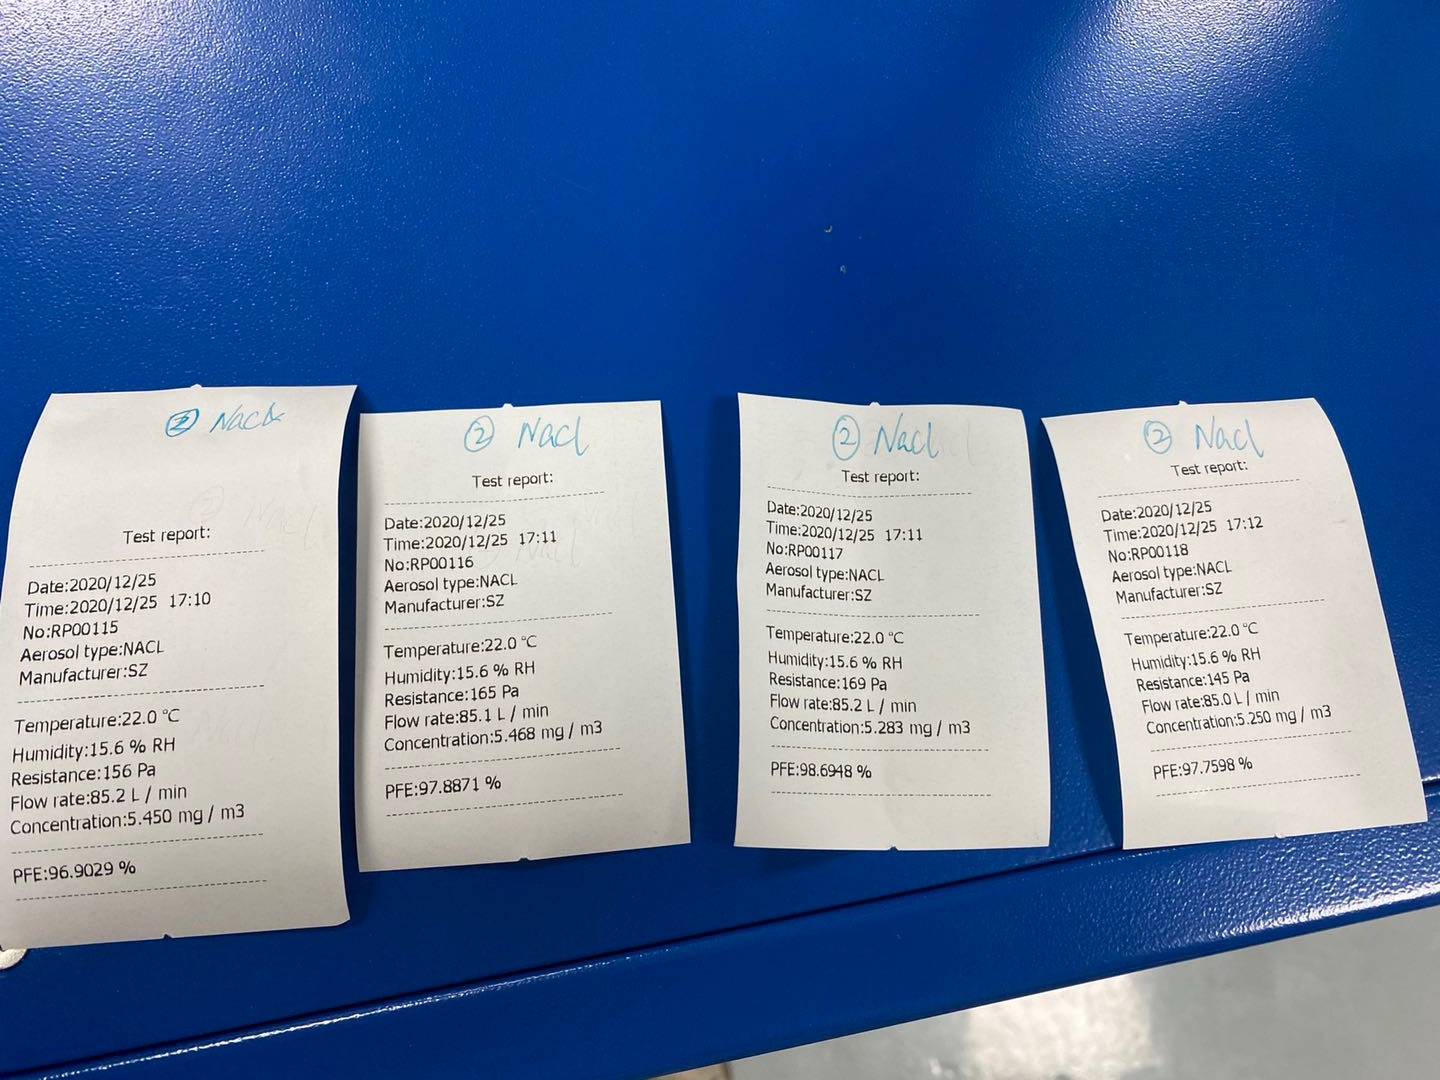 ② Nacl
Test report:
Date:2020/12/25
Time:2020/12/25 17:10
No:RP00115
Aerosol type:NACL
Manufacturer:SZ
Temperature:22.0 °C
Humidity:15.6 % RH
Resistance:156 Pa
Flow rate:85.2 L / min
Concentration:5.450 mg / m3
PFE:96.9029 %
② Nacl
Test report:
Date:2020/12/25
Time:2020/12/25 17:11
No:RP00116
Aerosol type:NACL
Manufacturer:SZ
Temperature:22.0 °C
Humidity:15.6 % RH
Resistance:165 Pa
Flow rate:85.1 L / min
Concentration:5.468 mg / m3
PFE:97.8871 %
② Nacl
Test report:
Date:2020/12/25
Time:2020/12/25 17:11
No:RP00117
Aerosol type:NACL
Manufacturer:SZ
Temperature:22.0 °C
Humidity:15.6 % RH
Resistance:169 Pa
Flow rate:85.2 L / min
Concentration:5.283 mg / m3
PFE:98.6948 %
② Nacl
Test report:
Date:2020/12/25
Time:2020/12/25 17:12
No:RP00118
Aerosol type:NACL
Manufacturer:SZ
Temperature:22.0 °C
Humidity:15.6 % RH
Resistance:145 Pa
Flow rate:85.0 L / min
Concentration:5.250 mg / m3
PFE:97.7598 %